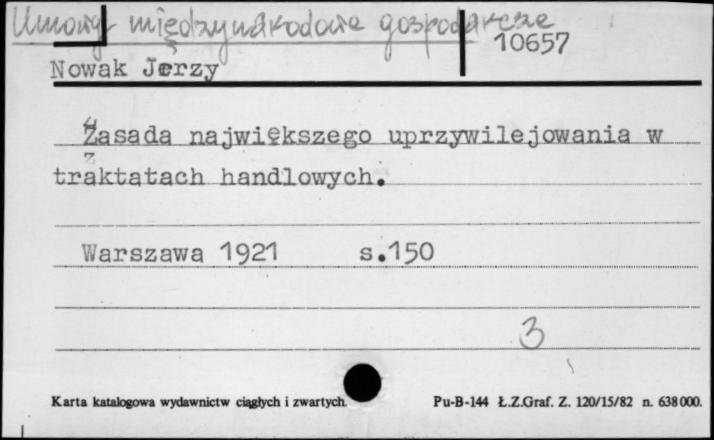 Umowy międzynarodowe gospodarcze
10657
Nowak Jerzy
Zasada największego uprzywilejowania w
traktatach handlowych.
Warszawa 1921 s.150
3
Karta katalogowa wydawnictw ciągłych i zwartych.
Pu-B-144 Ł.Z.Graf. Z. 120/15/82 n. 638000.